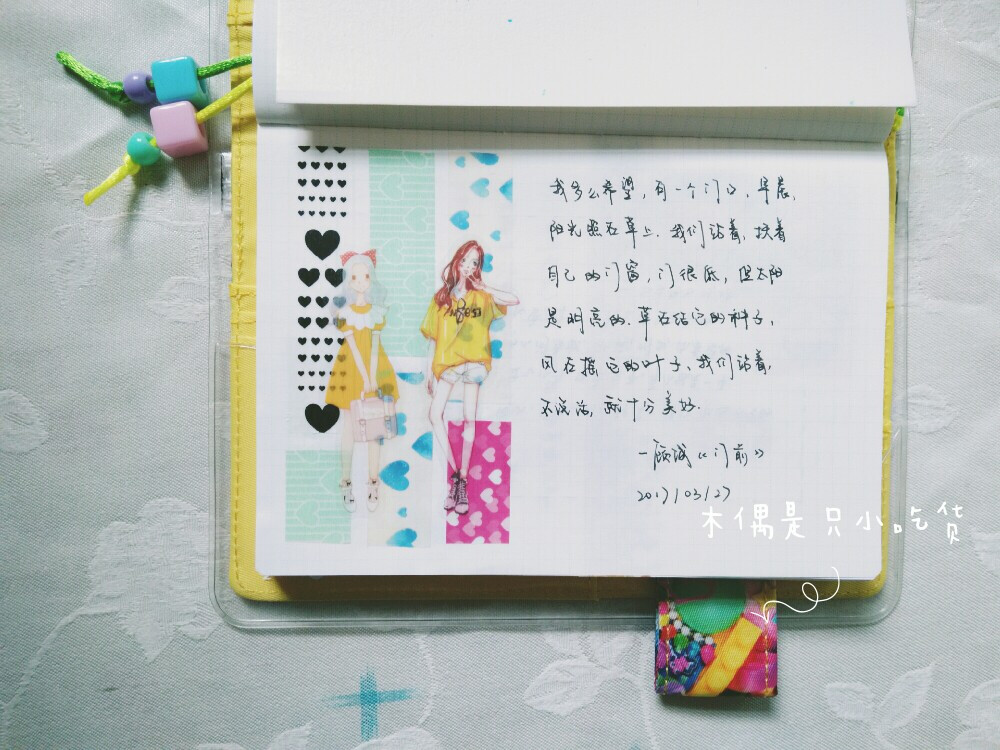 我多么希望，有一个门口，早晨，
阳光照在草上，我们站着，扶着
自己的门窗，门很低，但太阳
是明亮的．草在结它的种子，
风在摇它的叶子，我们站着，
不说话，就十分美好．
—顾城《门前》
2017/03/27
木偶是只小吃货